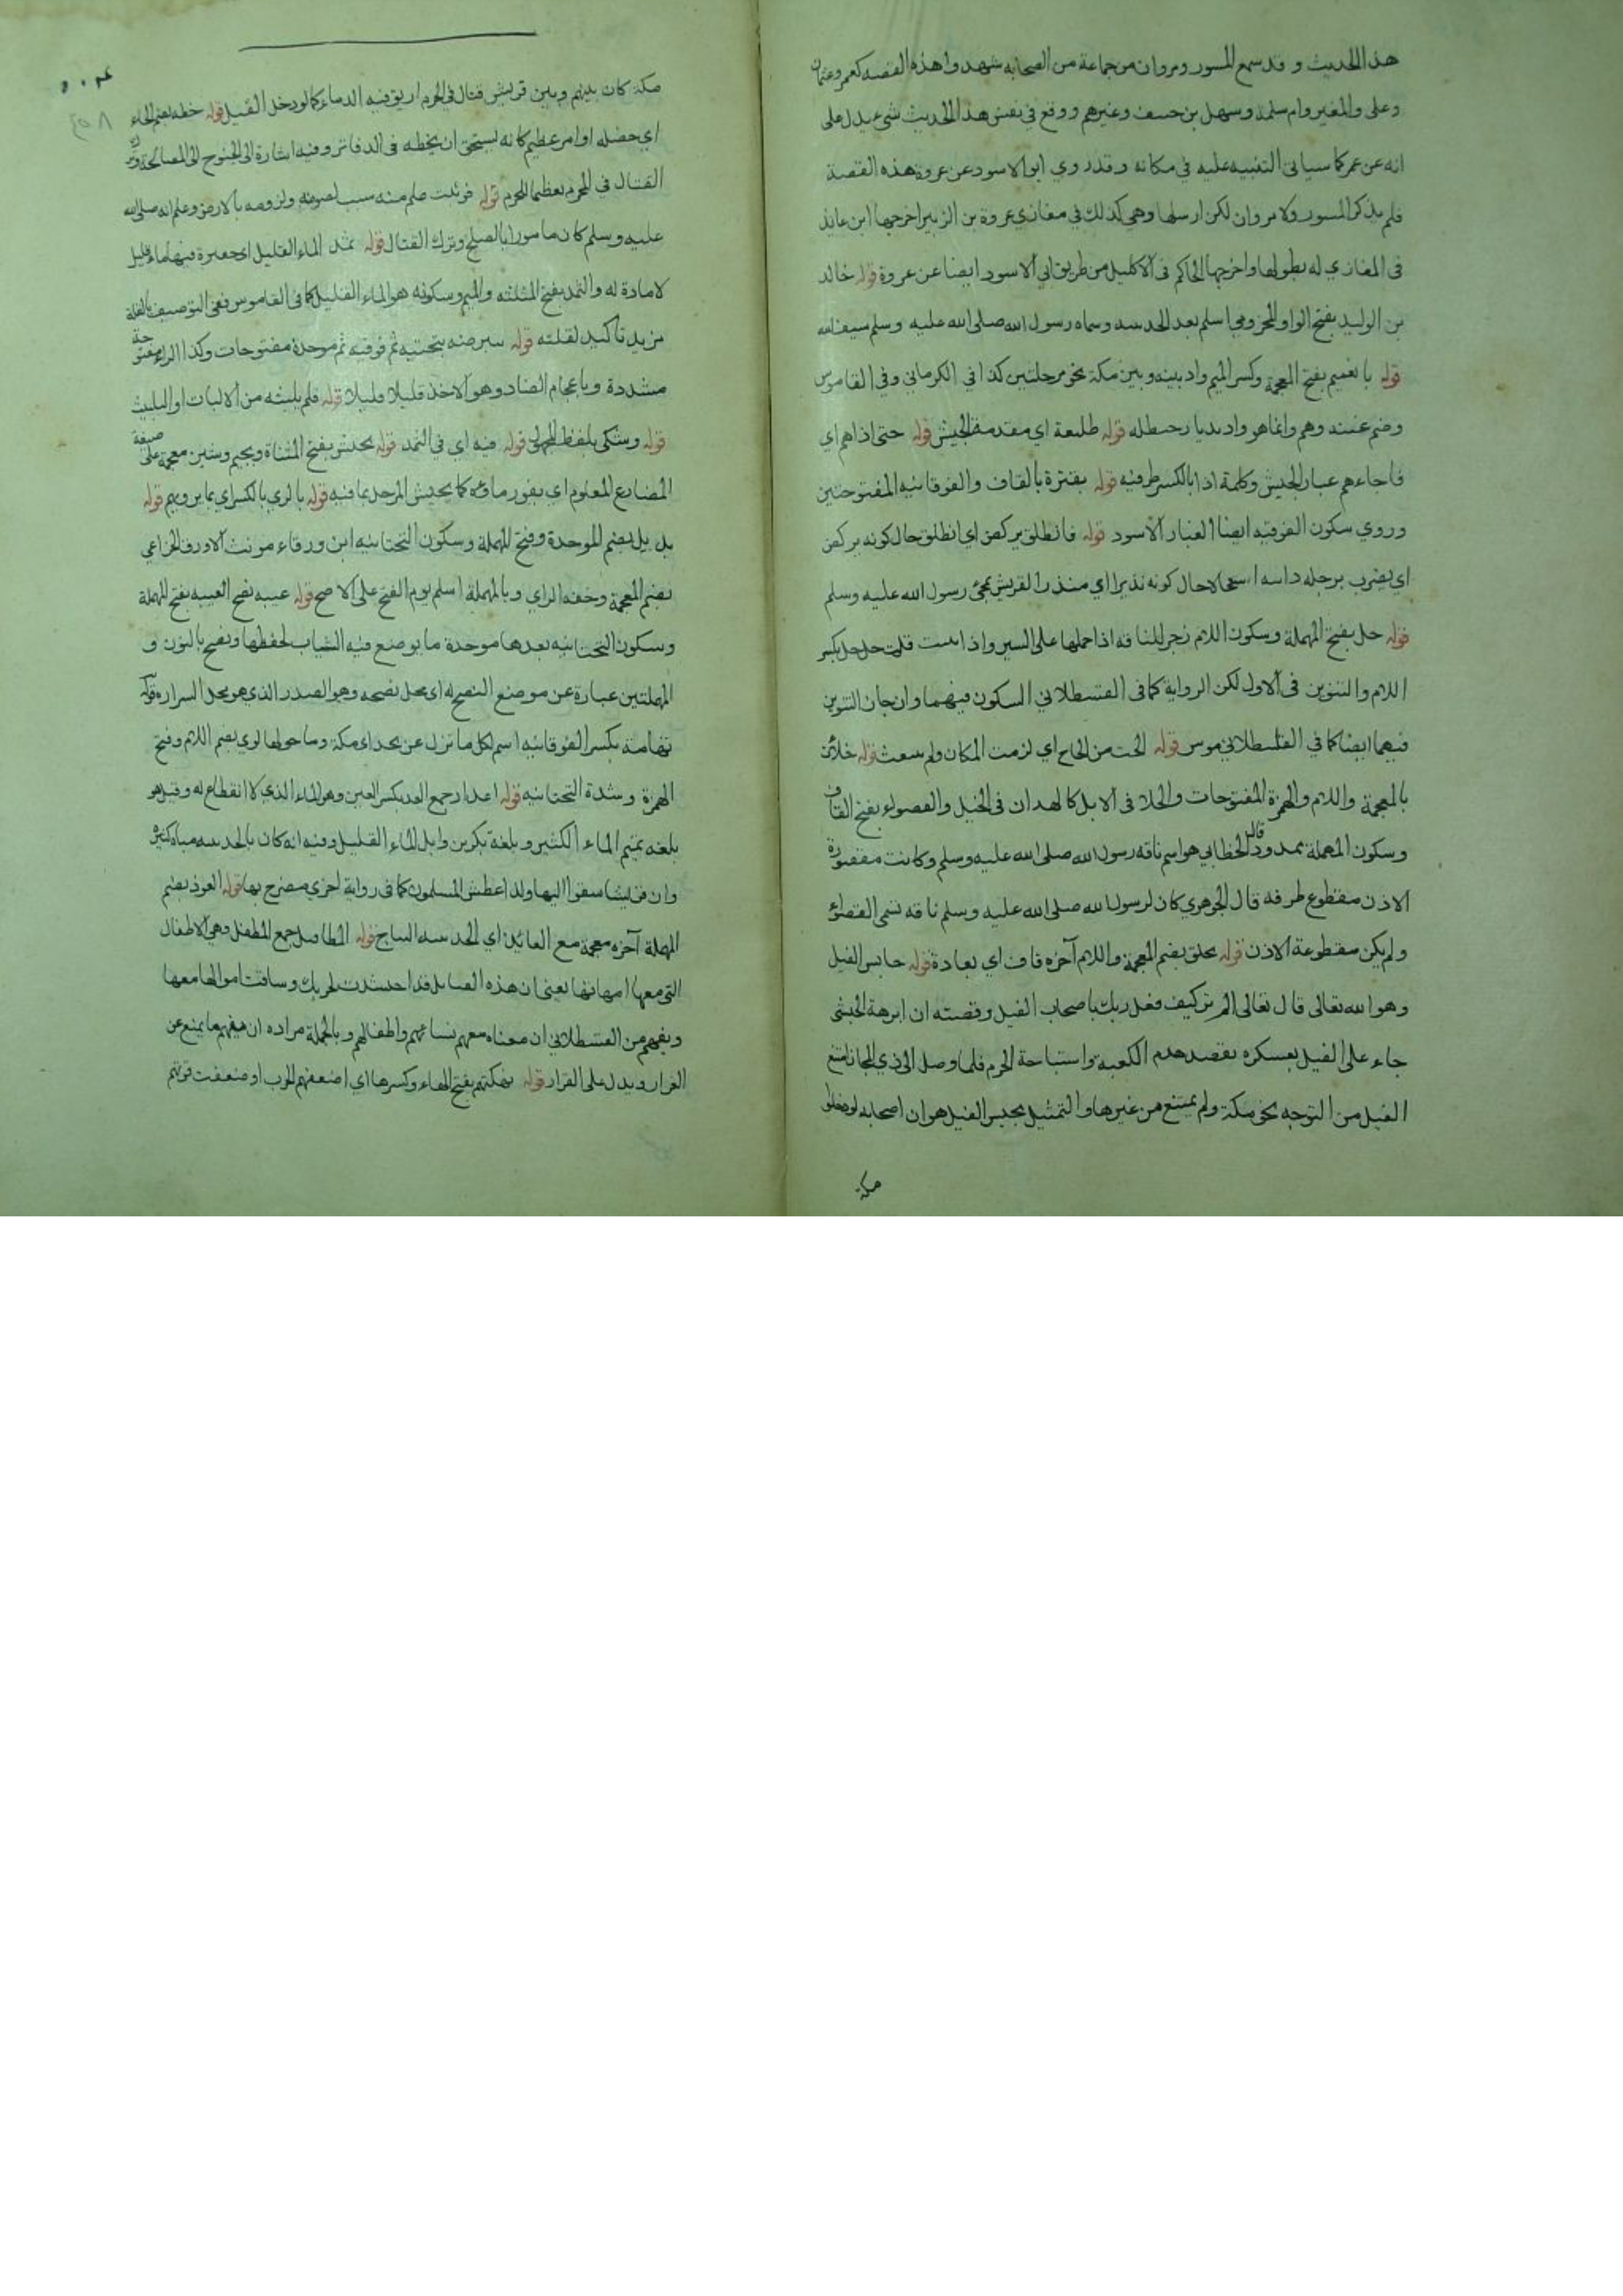 هذا الحديث وقد سمع المسور ومروان من جماعة من الصحابه شهدوا هذه القصه كعمر وعثمان
وعلى والمغير وام سلمة وسهل بن حنيف وغيرهم ووقع في نفس هذا الحديث شئ يدل على
انه عن عمر كما سياتى التنبيه عليه في مكانه وقد روي ابو الاسود عن عروة هذه القصة
فلم يذكر المسور ولا مروان لكن ارسلها وهى كذلك في مغازي عروة بن الزبير اخرجها ابن عايذ
فى المغازي له بطولها واخرجها الحاكم فى الاكليل من طريق ابى الاسود ايضا عن عروة قوله خالد
بن الوليد بفتح الواو المخزومي اسلم بعد الحديبيه وسماه رسول الله صلى الله عليه وسلم سيف الله
قوله بالغميم بفتح المعجمة وكسر الميم واد بينه وبين مكة نحو مرحلتين كذا في الكرمانى وفى القاموس
وضم غينه وهم وانما هو واد قوله طليعة اي مقدمة الجيش قوله حتى اذا هم اي
فاجاءهم غبار الجيش وكلمة اذا بالكسر ظرفيه قوله بقترة بالقاف والفوقانيه المفتوحتين
وروي سكون الفوقيه ايضا الغبار الاسود قوله فانطلق يركض اي انطلق حال كونه يركض
اي يضرب برجله دابته حال كونه نذيرا اي منذرا لقريش بمجئ رسول الله عليه وسلم
قوله حل بفتح المهملة وسكون اللام زجر للناقه اذا حملها على السير واذا قلت حل حل بكسر
اللام والتنوين فى الاول لكن الرواية كما فى القسطلاني السكون فيهما وان جاز التنوين
فيهما ايضا كما في القسطلاني قوله الحت من الحاح اي لزمت المكان ولم قوله خلائت
بالمعجمة واللام والهمزة المفتوحات والخلا فى الابل كا فى الخيل والقصواء بفتح القاف
وسكون المهملة ممدود قال الخطابي هو اسم ناقه رسول الله صلى الله عليه وسلم وكانت مقصورة
الاذن مقطوع طرفه قال الجوهري كان لرسول الله صلى الله عليه وسلم ناقه تسمى القصواء
ولم يكن مقطوعة الاذن قوله بخلق بضم المعجمة واللام آخره قاف اي بعادة قوله حابس الفيل
وهو الله تعالى قال تعالى الم تر كيف فعل ربك باصحاب الفيل وقصته ان ابرهة الحبشى
جاء على الفيل بعسكره بقصد هدم الكعبة واستباحة الحرم فلما وصل الى ذي المجاز امتنع
الفيل من التوجه نحو مكة ولم يمتنع من غيرها والتمثيل بحبس الفيل هو ان اصحابه لو دخلوا
مكة
مكة كان بينهم وبين قريش قتال في الحرم اريق فيه الدماء كما لو دخل الفيل قوله خطه بضم الخاء
اي خصله او امر عظيم كانه يستحق ان يخطه فى الدفاتر وفيه اشارة الى الجنوح الى المصالحة وترك
القتال في الحرم تعظيما للحرم قوله ولزومه بالارض وعلم انه صلى الله
عليه وسلم كان مامورا بالصلح وترك القتال قوله ثمد الماء القليل اي حفيرة فيها ماء قليل
لا مادة له والثمد بفتح المثلثه والميم وسكونه هو الماء القليل كما فى القاموس ففي التوصيف بالقلة
مزيد تاكيد لقلته قوله يتبرضه بتحتيه ثم فوقيه ثم موحدة مفتوحات وكذا الراء مفتوحة
مشددة وباعجام الضاد وهو الاخذ قليلا قليلا قوله فلم يلبثه من الالباث او التلبيث
قوله وشكى بلفظ المجهول قوله فيه اي في الثمد قوله يجيش بفتح المثناة وبجيم وشين معجمة على صيغة
المضارع المعلوم اي يفور ماؤه كما يجيش المرجل بما فيه قوله بالري بالكسر اي بما يرويهم قوله
بديل بضم الموحدة وفتح المهملة وسكون التحتانيه ابن ورقاء مونث الاورق الخزاعي
بضم المعجمة وخفه الزاي وبالمهملة اسلم يوم الفتح على الاصح قوله عيبه نصح العيبه بفتح المهملة
وسكون التحتانيه بعدها موحدة ما يوضع فيه الثياب لحفظها ونصح بالنون و
المهملتين عبارة عن موضع النصح له اي محل نصحه وهو الصدر الذي هو محل اسراره قوله
تهامة بكسر الفوقانيه اسم لكل ما نزل عن نجد اى مكة وما حولها لوي بضم اللام وفتح
الهمزة وشدة التحتانيه قوله اعداد جمع العد بكسر العين وهو الماء الذي لا انقطاع له وقيل هو
بلغه تميم الماء الكثير وبلغه بكر بن وايل الماء القليل وفيه انه كان بالحديبيه مياه كثيرة
وان قريشا سبقوا اليها ولذا عطش المسلمون كما فى رواية اخري مصرح بها قوله العوذ بضم
المهملة آخره معجمة جمع العائذ قوله المطافيل جمع المطفل وهى الاطفال
التى معها امهاتها يعنى ان هذه القبائل قد احتشدت لحربك وساقت اموالها معها
ويفهم من القسطلاني ان معناه معهم نسائهم واطفالهم وبالجملة مراده ان معهم ما يمنع عن
الفرار ويدل على القرار قوله نهكتهم بفتح الهاء وكسرها اي اضعفهم الحرب او ضعفت قوتهم